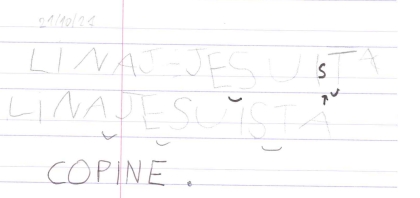 21/10/21
LINAJ-JESUISTA
LINAJESUISTA
COPINE.